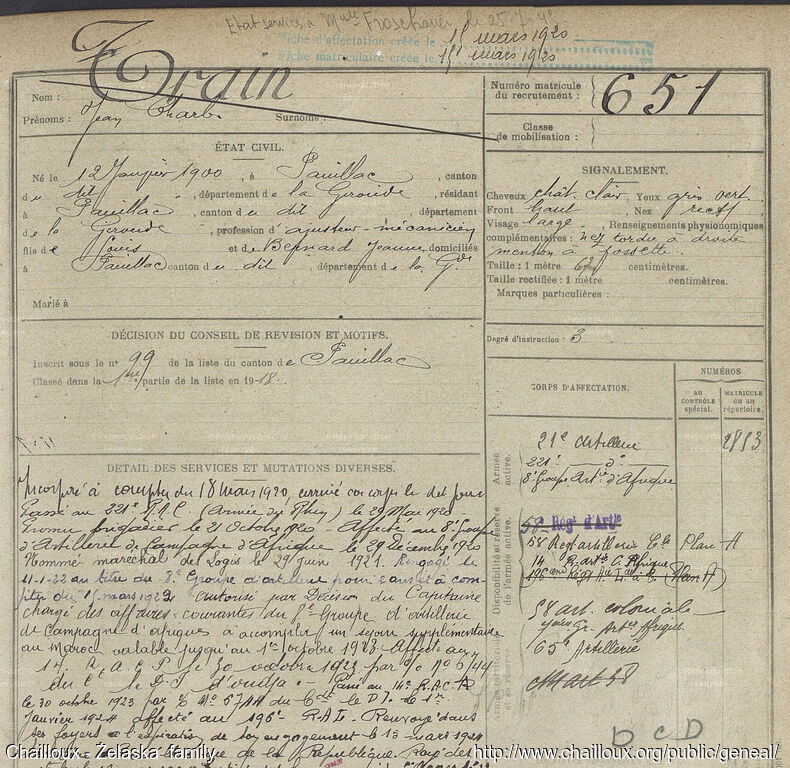 Etat services à Mlle de 25
Fiche d'affectation créée le 15 mars 1920
Fiche matriculaire créée le 15 mars 1920
Train
Nom :
Prénoms : Jean Charles Surnoms :
Numéro matricule du recrutement : 651
Classe de mobilisation :
ÉTAT CIVIL.
Né le 12 Janvier 1900, à Pauillac, canton
du dit, département de la Gironde, résidant
à Pauillac, canton du dit, département
de la Gironde, profession d'ajusteur-mécanicien
fils de Louis et de Bernard Jeanne, domiciliés
à Pauillac canton du dit, département de la Gde
Marié à
SIGNALEMENT.
Cheveux chât. clair, Yeux gris vert.
Front haut, Nez rect
Visage large. Renseignements physionomiques
complémentaires : nez tordu à droite
menton à fossette.
Taille : 1 mètre centimètres.
Taille rectifiée : 1 mètre centimètres.
Marques particulières :
Degré d'instruction : 3
DÉCISION DU CONSEIL DE REVISION ET MOTIFS.
Inscrit sous le n° 99 de la liste du canton de Pauillac
Classé dans la 1ère partie de la liste en 1918.
DÉTAIL DES SERVICES ET MUTATIONS DIVERSES.
Incorporé à compter du 18 Mars 1920, arrivé au corps le dit jour
Passé au 221e R.A.C. (Armée du Rhin) le 29 Mai 1920.
Promu brigadier le 21 octobre 1920 - Affecté au 8e Groupe
d'Artillerie de Campagne d'Afrique le 29 Décembre 1920
Nommé maréchal des Logis le 29 juin 1921. Rengagé le
11-1-22 au titre du 8e Groupe d'artillerie pour 2 ans à comp
ter du 15 mars 1922 autorisé par Décision du Capitaine
chargé des affaires courantes du 8e Groupe d'artillerie
de Campagne d'afrique à accomplir un séjour supplémentaire
au Maroc valable jusqu'au 1er octobre 1923 Affecté au
14. R.A.C.A le 30 octobre 1923 par
d'oudja - Passé au 14e R.A.C.A
le 30 octobre 1923 par
Janvier 1924 affecté au 196e R.A.L. Renvoyé dans
ses foyers à l'expiration de son engagement le 15 mars 1924
de la République.
CORPS D'AFFECTATION.
NUMÉROS
AU CONTRÔLE spécial.
MATRICULE ou au répertoire.
Armée active.
21e Artillerie 2883
221e do
8e Groupe Artie d'Afrique
Disponibilité et réserve de l'armée active.
58e Régt d'Artie
58 Reg artillerie Cle Plan A
14 R. artie C. Afrique
196ème Regt A. L. (Plan A)
58 art. coloniale
Gr. Artie Afrique
65e Artillerie
Armée territoriale et sa réserve
art 58
D C D
Chailloux - Zelaska family http://www.chailloux.org/public/geneal/